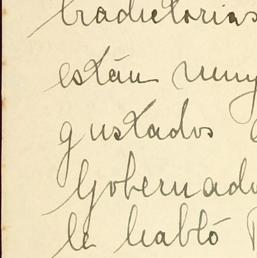 tradictorias
están muy
gustados
Gobernado
le habló